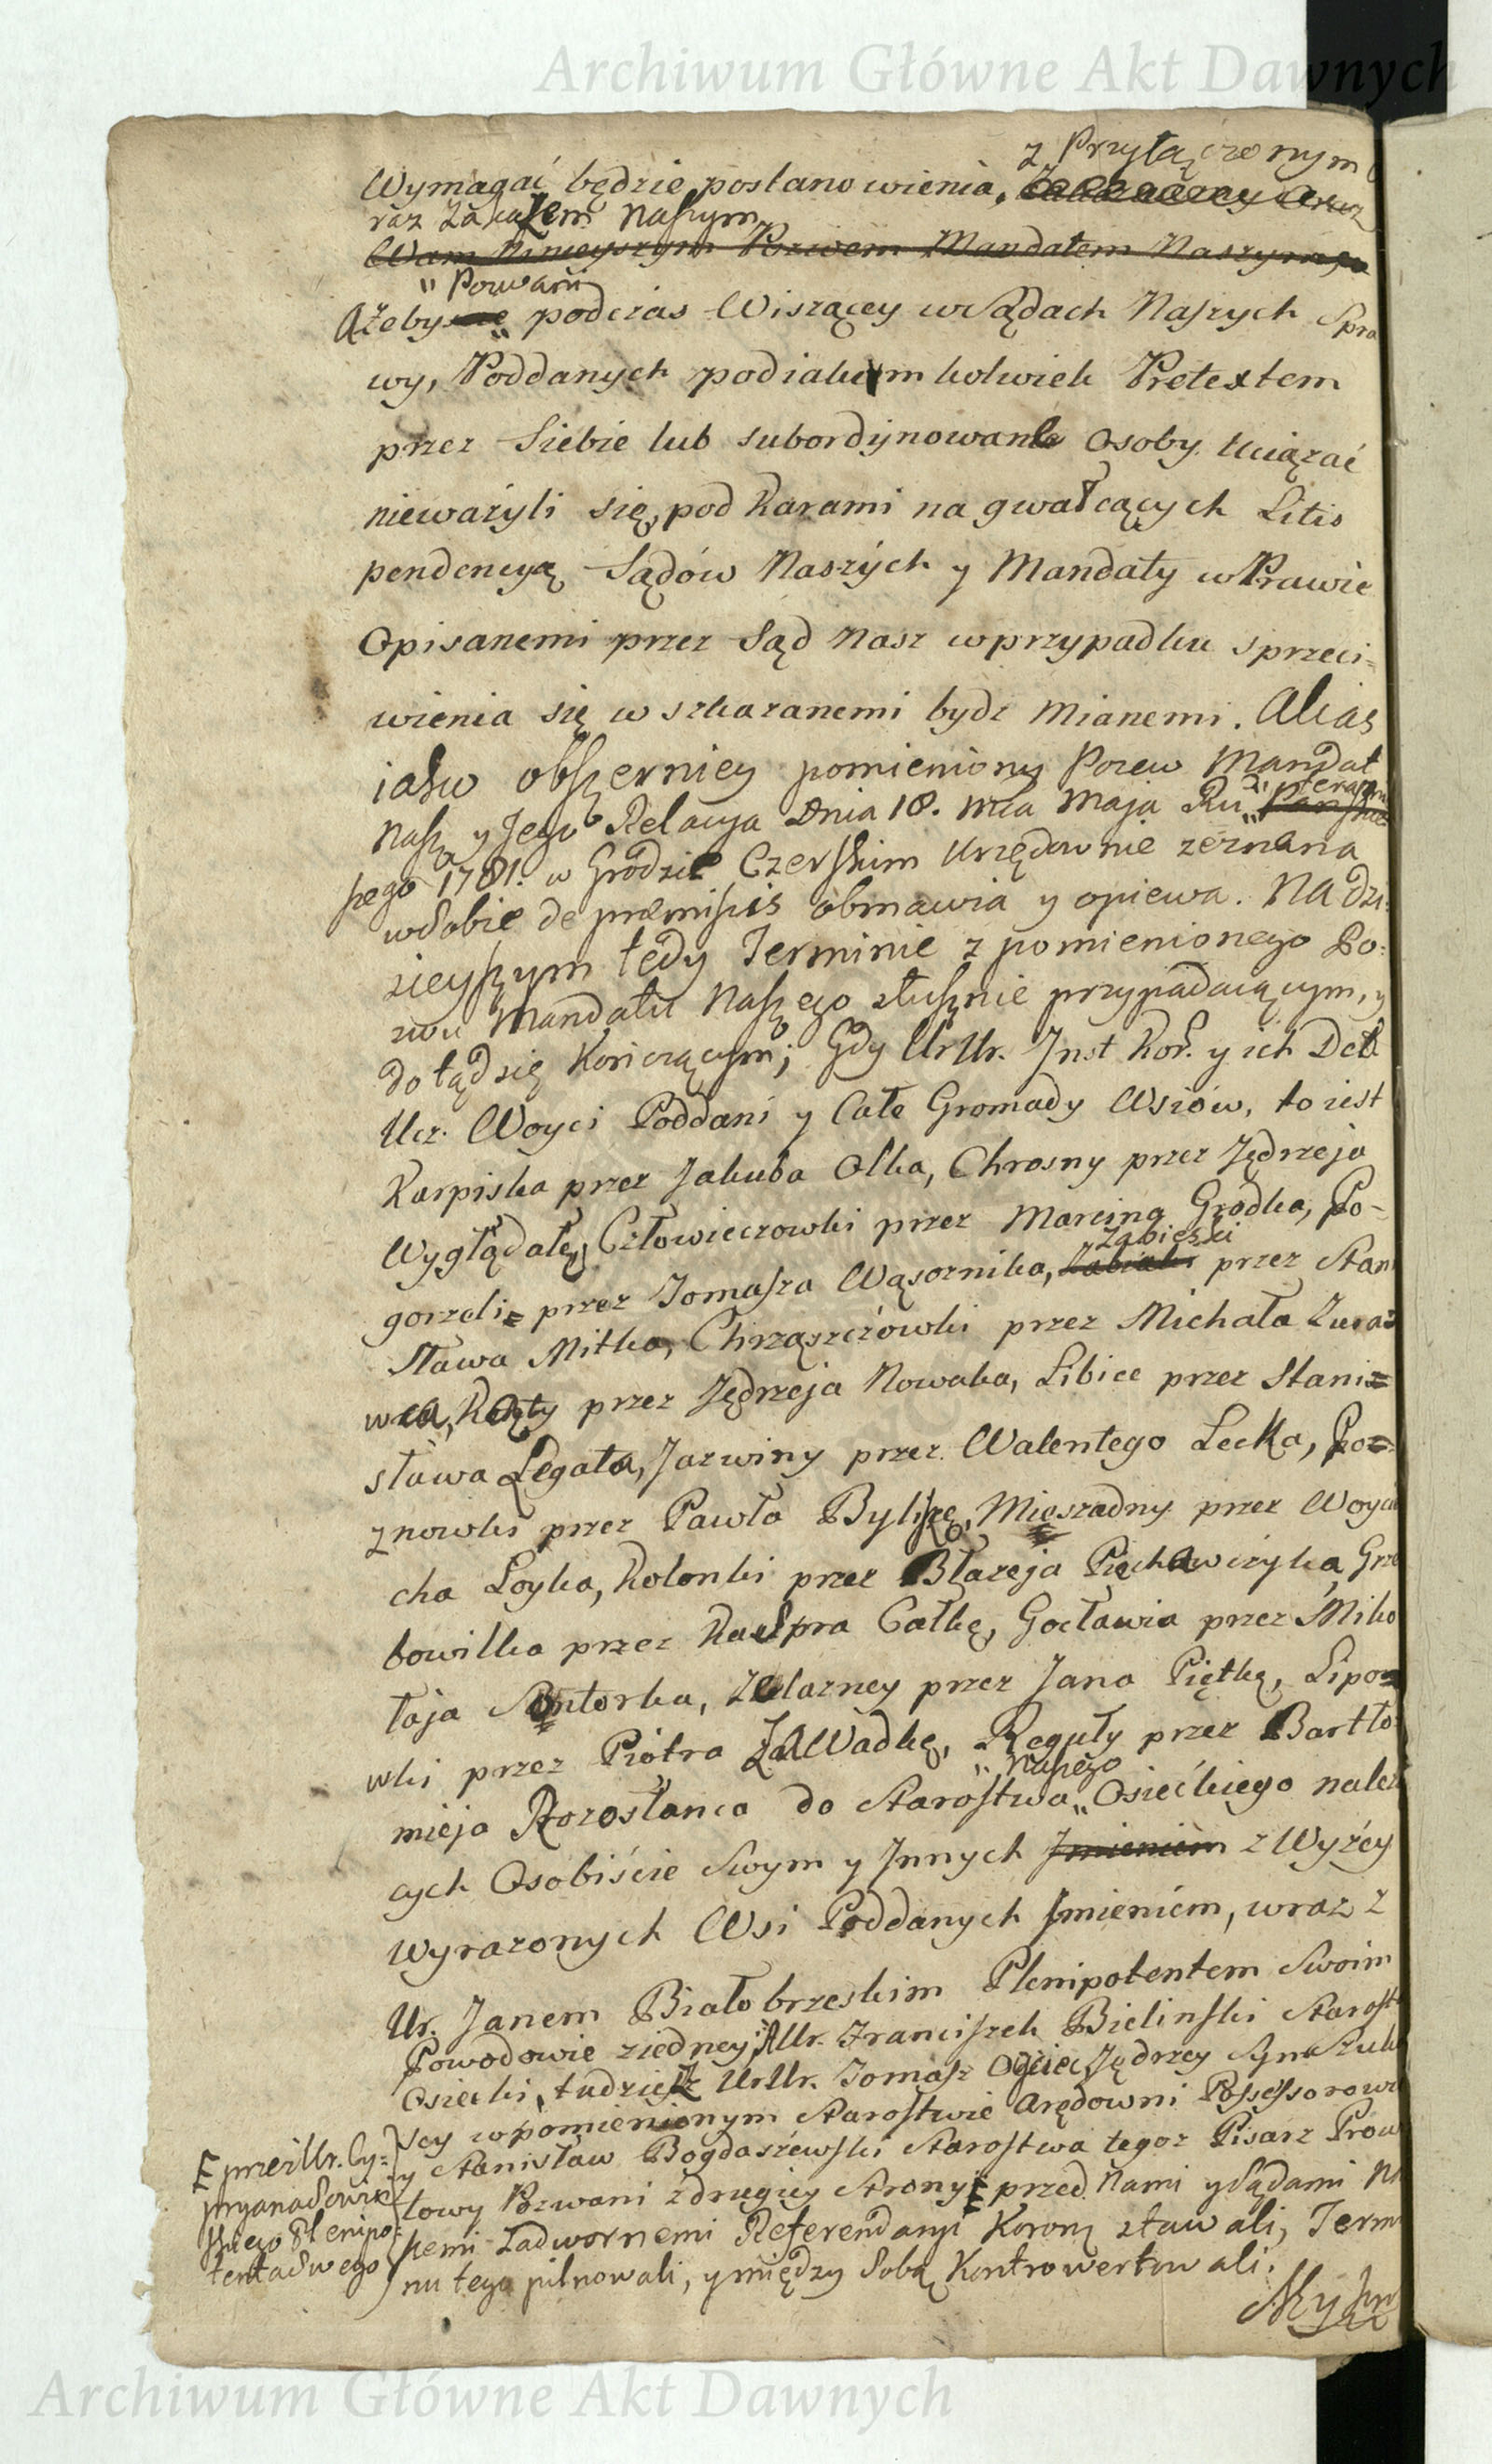 Archiwum Główne Akt Dawnych
z Przyłączonym
Wymagać będzie postanowienia,
raz Zakazem Naszym
Wam Ninieyszym Pozwem Mandatem Naszym
" Pozwani
Ażeby podczas Wiszącey w Sądach Naszych Spra
wy, Poddanych pod iakim kolwiek Pretextem
przez Siebie lub subordynowane Osoby Uciązać
nieważyli się, pod Karami na gwałcących Litis
pendencyą Sądów Naszych y Mandaty w Prawie
Opisanemi przez Sąd Nasz w przypadku sprzeci=
wienia się wskazanemi bydz mianemi. Alias
iako obszerniey pomieniony Pozew Mandat
Nasz y Jego Relacya Dnia 18. mca Maja Ru " teraźniey
szego 1781. w Grodzie Czerskim Urzędownie zeznana
w Sobie de præmissis obmawia y opiewa. Na dzi=
sieyszym tedy Terminie z pomienionego Po=
zwu Mandatu Naszego słusznie przypadaiącym, y
do tąd się Kończącym; Gdy UrUr. Inst. Kor. y ich Del.
Ucz. Woyci Poddani y Całe Gromady Wsiów, to iest
Karpiska przez Jakuba Olka, Chrosny przez Jędrzeja
Wyglądałę, Człowieczowki przez Marcina Grodka, Po-
Zabieżki
gorzeli= przez Tomasza Wąsoznika, Zabiaki przez Stani
sława Mitka, Chrząszczówki przez Michała Zuraz
wca, Kąty przez Jędrzeja Nowaka, Libice przez Stani=
sława Legata, Jazwiny przez Walentego Lecka, Po=
znowki przez Pawła Byliszę, Mięszadny przez Woycie
cha Loyka, Kolonki przez Błażeja Piechawczyka, Grze
bowilka przez Kaspra Całkę, Gocławia przez Miko
łaja Sontorka, Zelazney przez Jana Piętkę, Lipo=
wki przez Piotra Zawadkę, Reguły przez Bartło
" Naszego
mieja Rozosłańca do Starostwa " Osieckiego należą
cych Osobiście Swym y Innych Imieniem z Wyżey
wyrazonych Wsi Poddanych Imieniem, wraz z
Ur. Janem Białobrzeskim Plenipotentem Swoim
Powodowie ziedney; Ur. Franciszek Bielinski Starosta
Osiecki, tudziesz UrUr. Tomasz Ociec, Jędrzey Syn Szul
scy w pomienionym Starostwie Arędowni Possessorowie
y Stanisław Bogdaszewski Starostwa tegoz Pisarz Prow
towy Pozwani z drugiey Strony przed Nami y Sądami Na
szemi Zadwornemi Referendaryi Korony stawali, Termi
nu tego pilnowali, y między Sobą Kontrowertowali.
przez Ur. Cy=
pryana
skiego Plenipo=
tenta Swego
My zn
Archiwum Główne Akt Dawnych